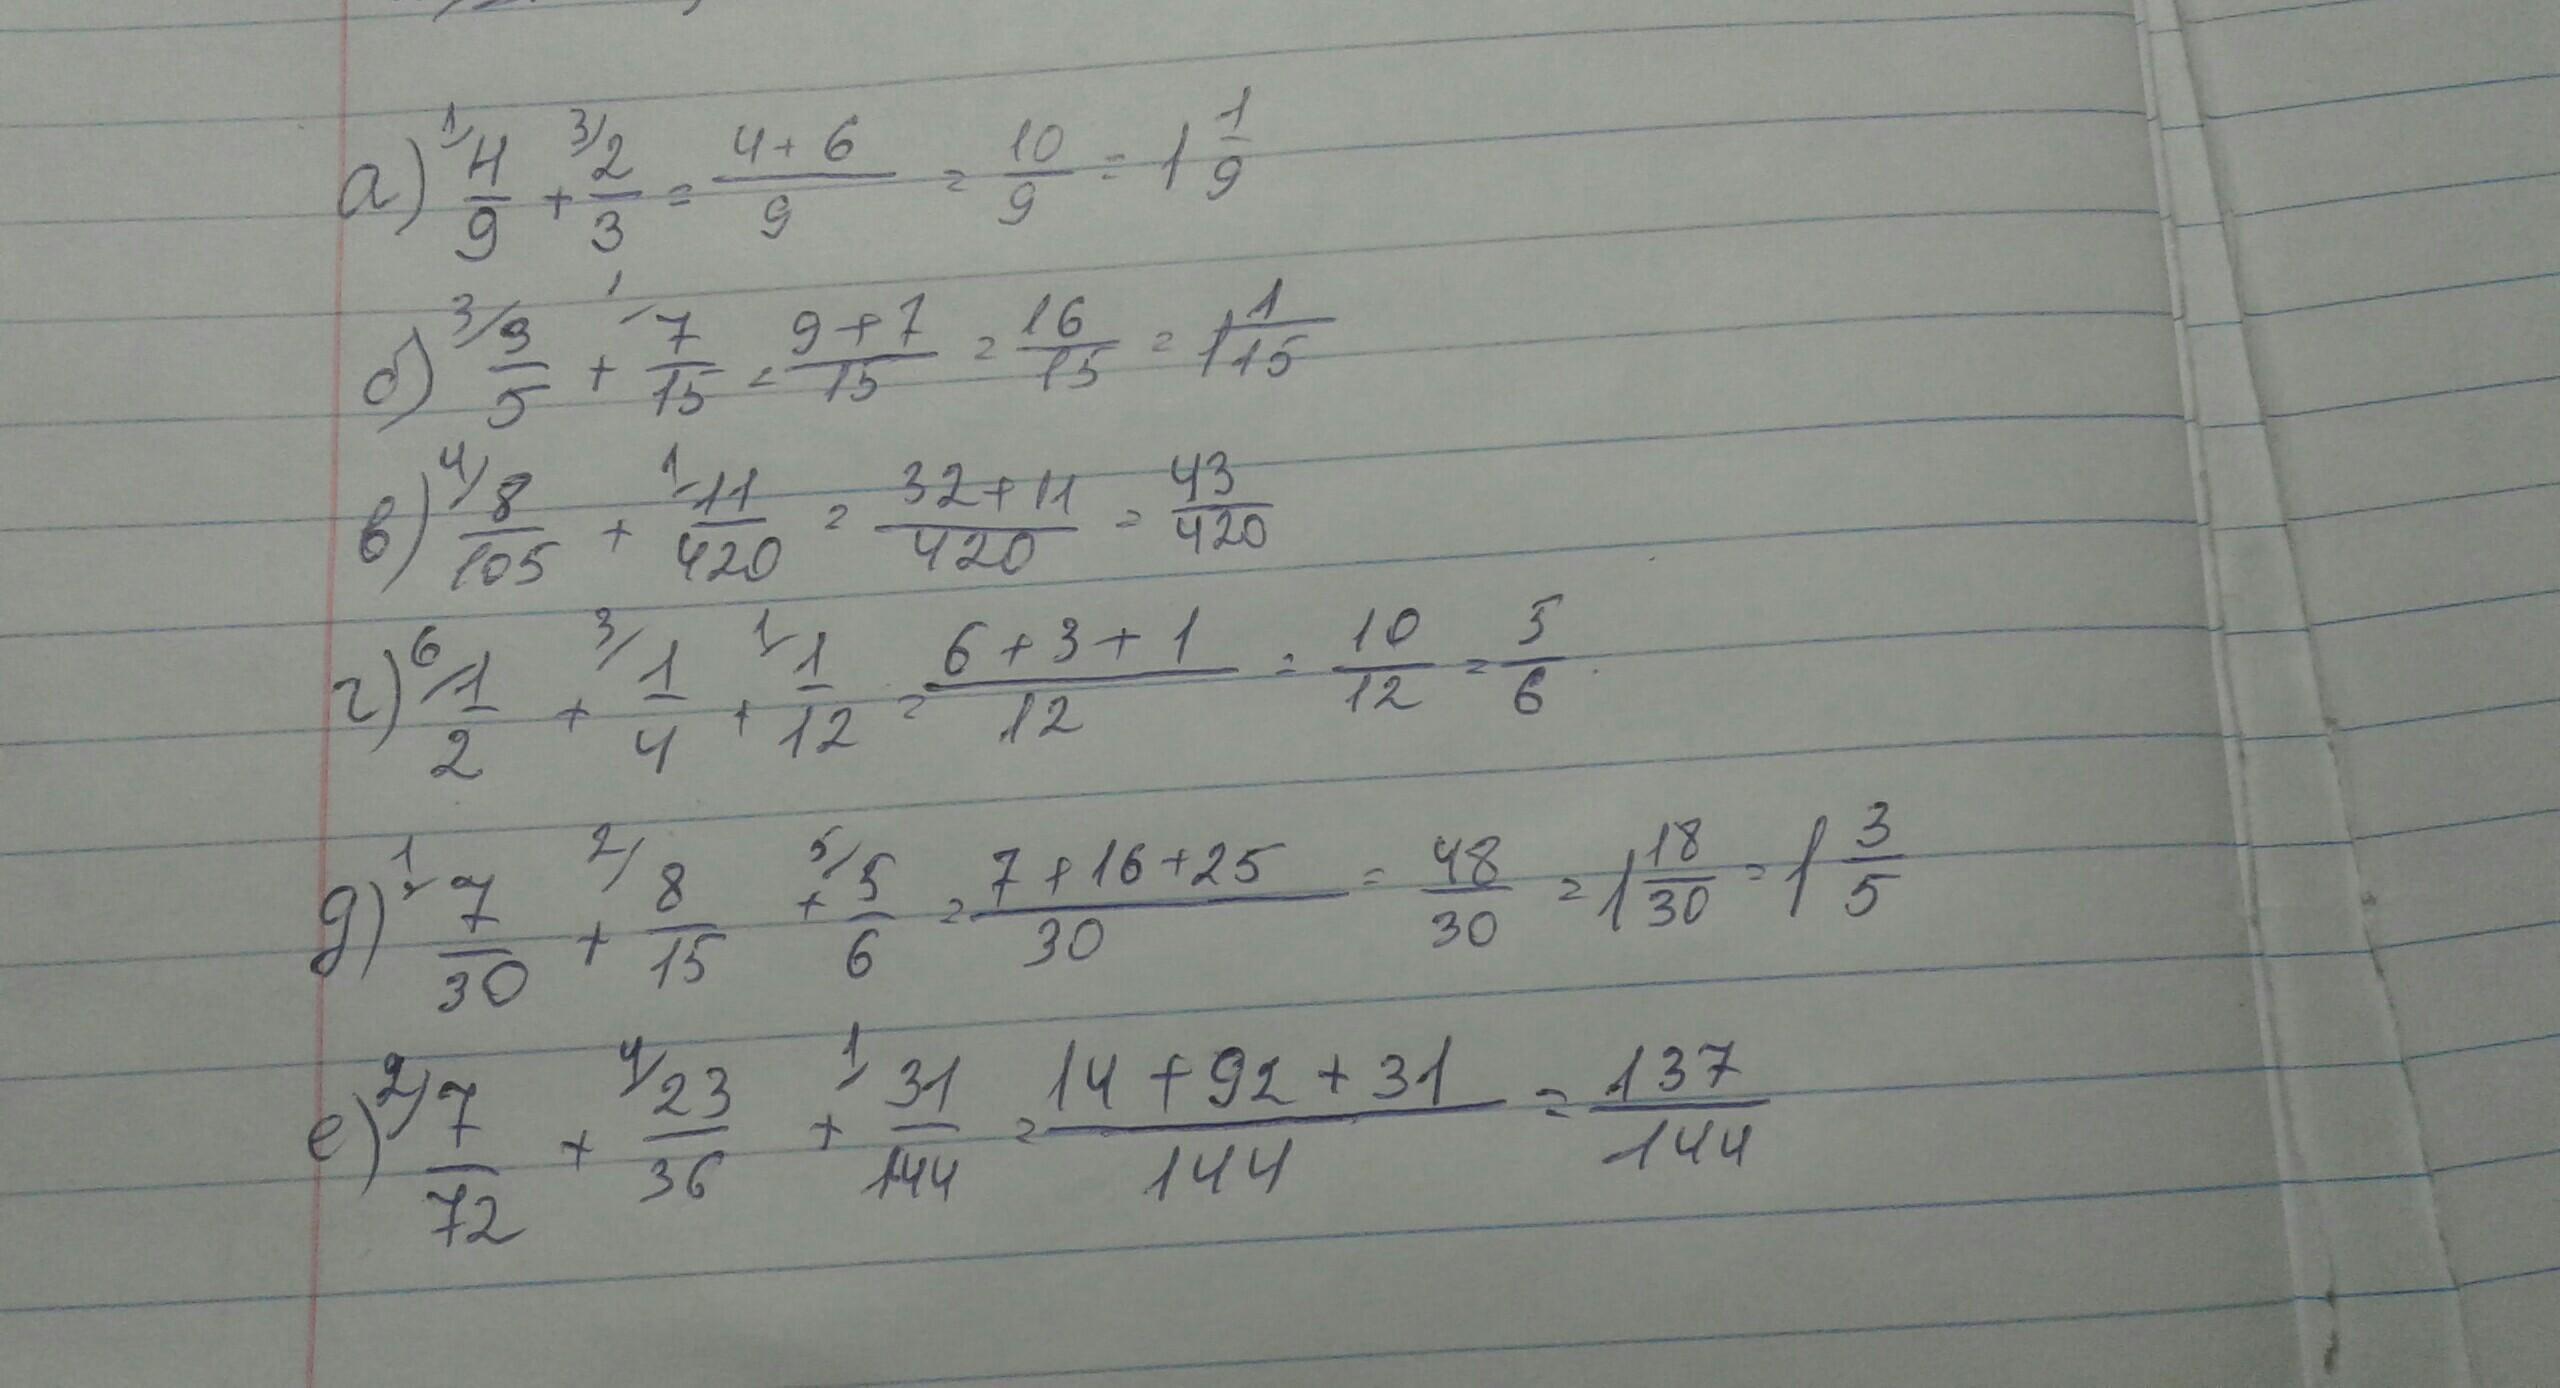 а) ¹/4/9 + ³/2/3 = (4+6)/9 = 10/9 = 1 1/9
б) ³/3/5 + ¹/7/15 = (9+7)/15 = 16/15 = 1 1/15
в) ⁴/8/105 + ¹/11/420 = (32+11)/420 = 43/420
г) ⁶/1/2 + ³/1/4 + ¹/1/12 = (6+3+1)/12 = 10/12 = 5/6
д) ¹/7/30 + ²/8/15 + ⁵/5/6 = (7+16+25)/30 = 48/30 = 1 18/30 = 1 3/5
е) ²/7/72 + ⁴/23/36 + ¹/31/144 = (14+92+31)/144 = 137/144